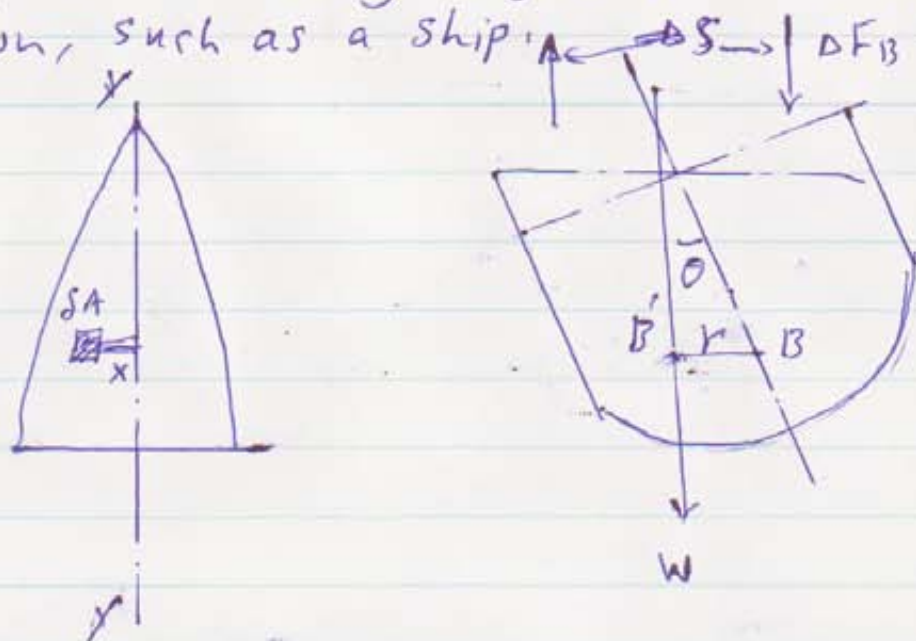 on, such as a ship.
ΔS
ΔF_B
Y
δA
x
θ
B'
r
B
W
Y